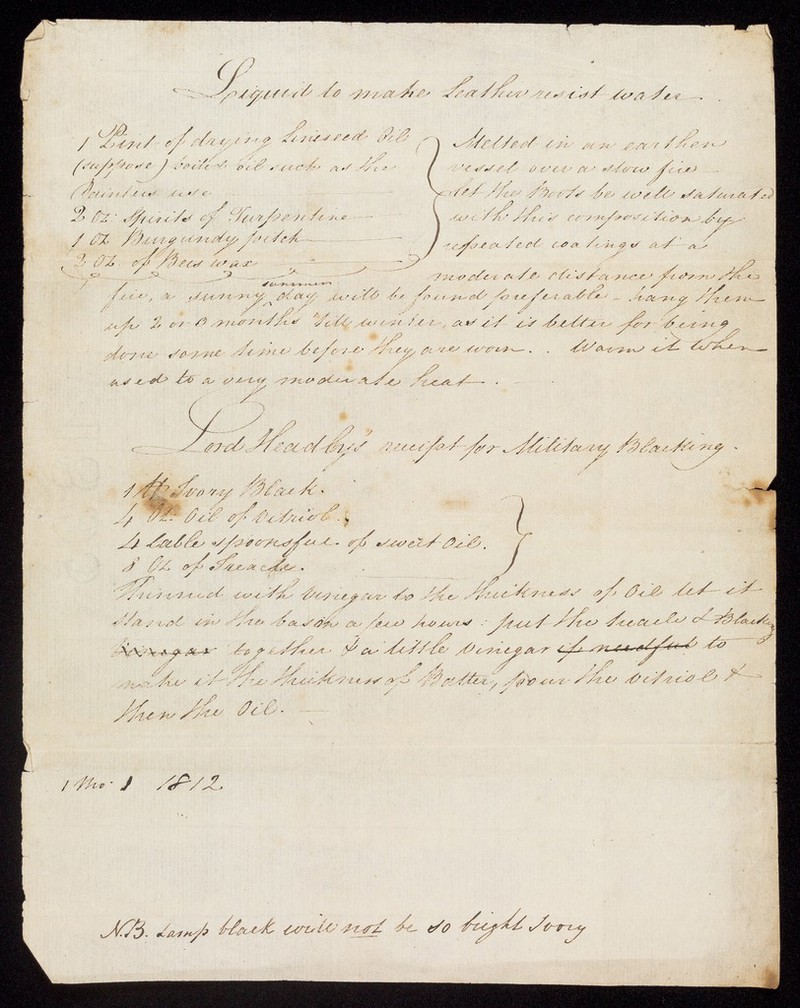 Liquid to make Leather resist water.
1 Pint of drying Lineseed Oil
(suppose) boiled oil such as the
Painters use
2 oz. Spirits of Turpentine
1 oz Burgundy pitch
2 oz of Bees wax
Melted in an earthen
vessel over a slow fire
Let the Boots be well saturated
with this composition by
repeated coatings at a
moderate distance from the
summer
fire, a sunny day will be found preferable - hang them
up 2 or 3 months till winter, as it is better for being
done some time before they are worn. . Warm it when
used to a very moderate heat.
Lord Headly's receipt for Military Blacking.
1 lb Ivory Black.
4 Oz. Oil of Vitriol.
4 table spoonsful of sweet Oil.
8 Oz of Treacle.
Thinned with vinegar to the thickness of Oil let it
stand in the bason a few hours: put the treacle & Blacking
vinegar together & a little vinegar if needful to
make it the thickness of Batter, pour the vitriol &
then the Oil.
1 Mo. 1 1812
N.B. Lamp black will not be so bright Ivory